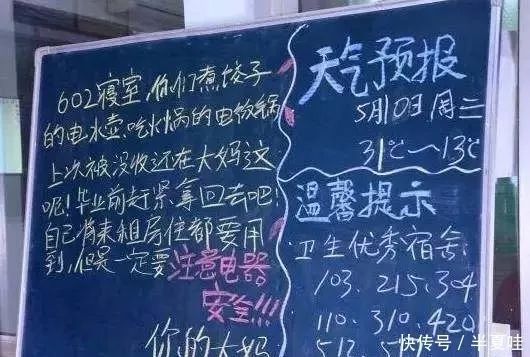 602寝室,你们煮饺子
的电水壶,吃火锅的电饭锅
上次被没收还在大妈这
呢!毕业前赶紧拿回去吧!
自己将来租房住都要用
到,但是一定要注意电器
安全!!!
你的大妈
天气预报
5月10日 周三
31℃~13℃
温馨提示
卫生优秀宿舍
103. 215. 304
110. 310. 420
快传号 / 半夏哇